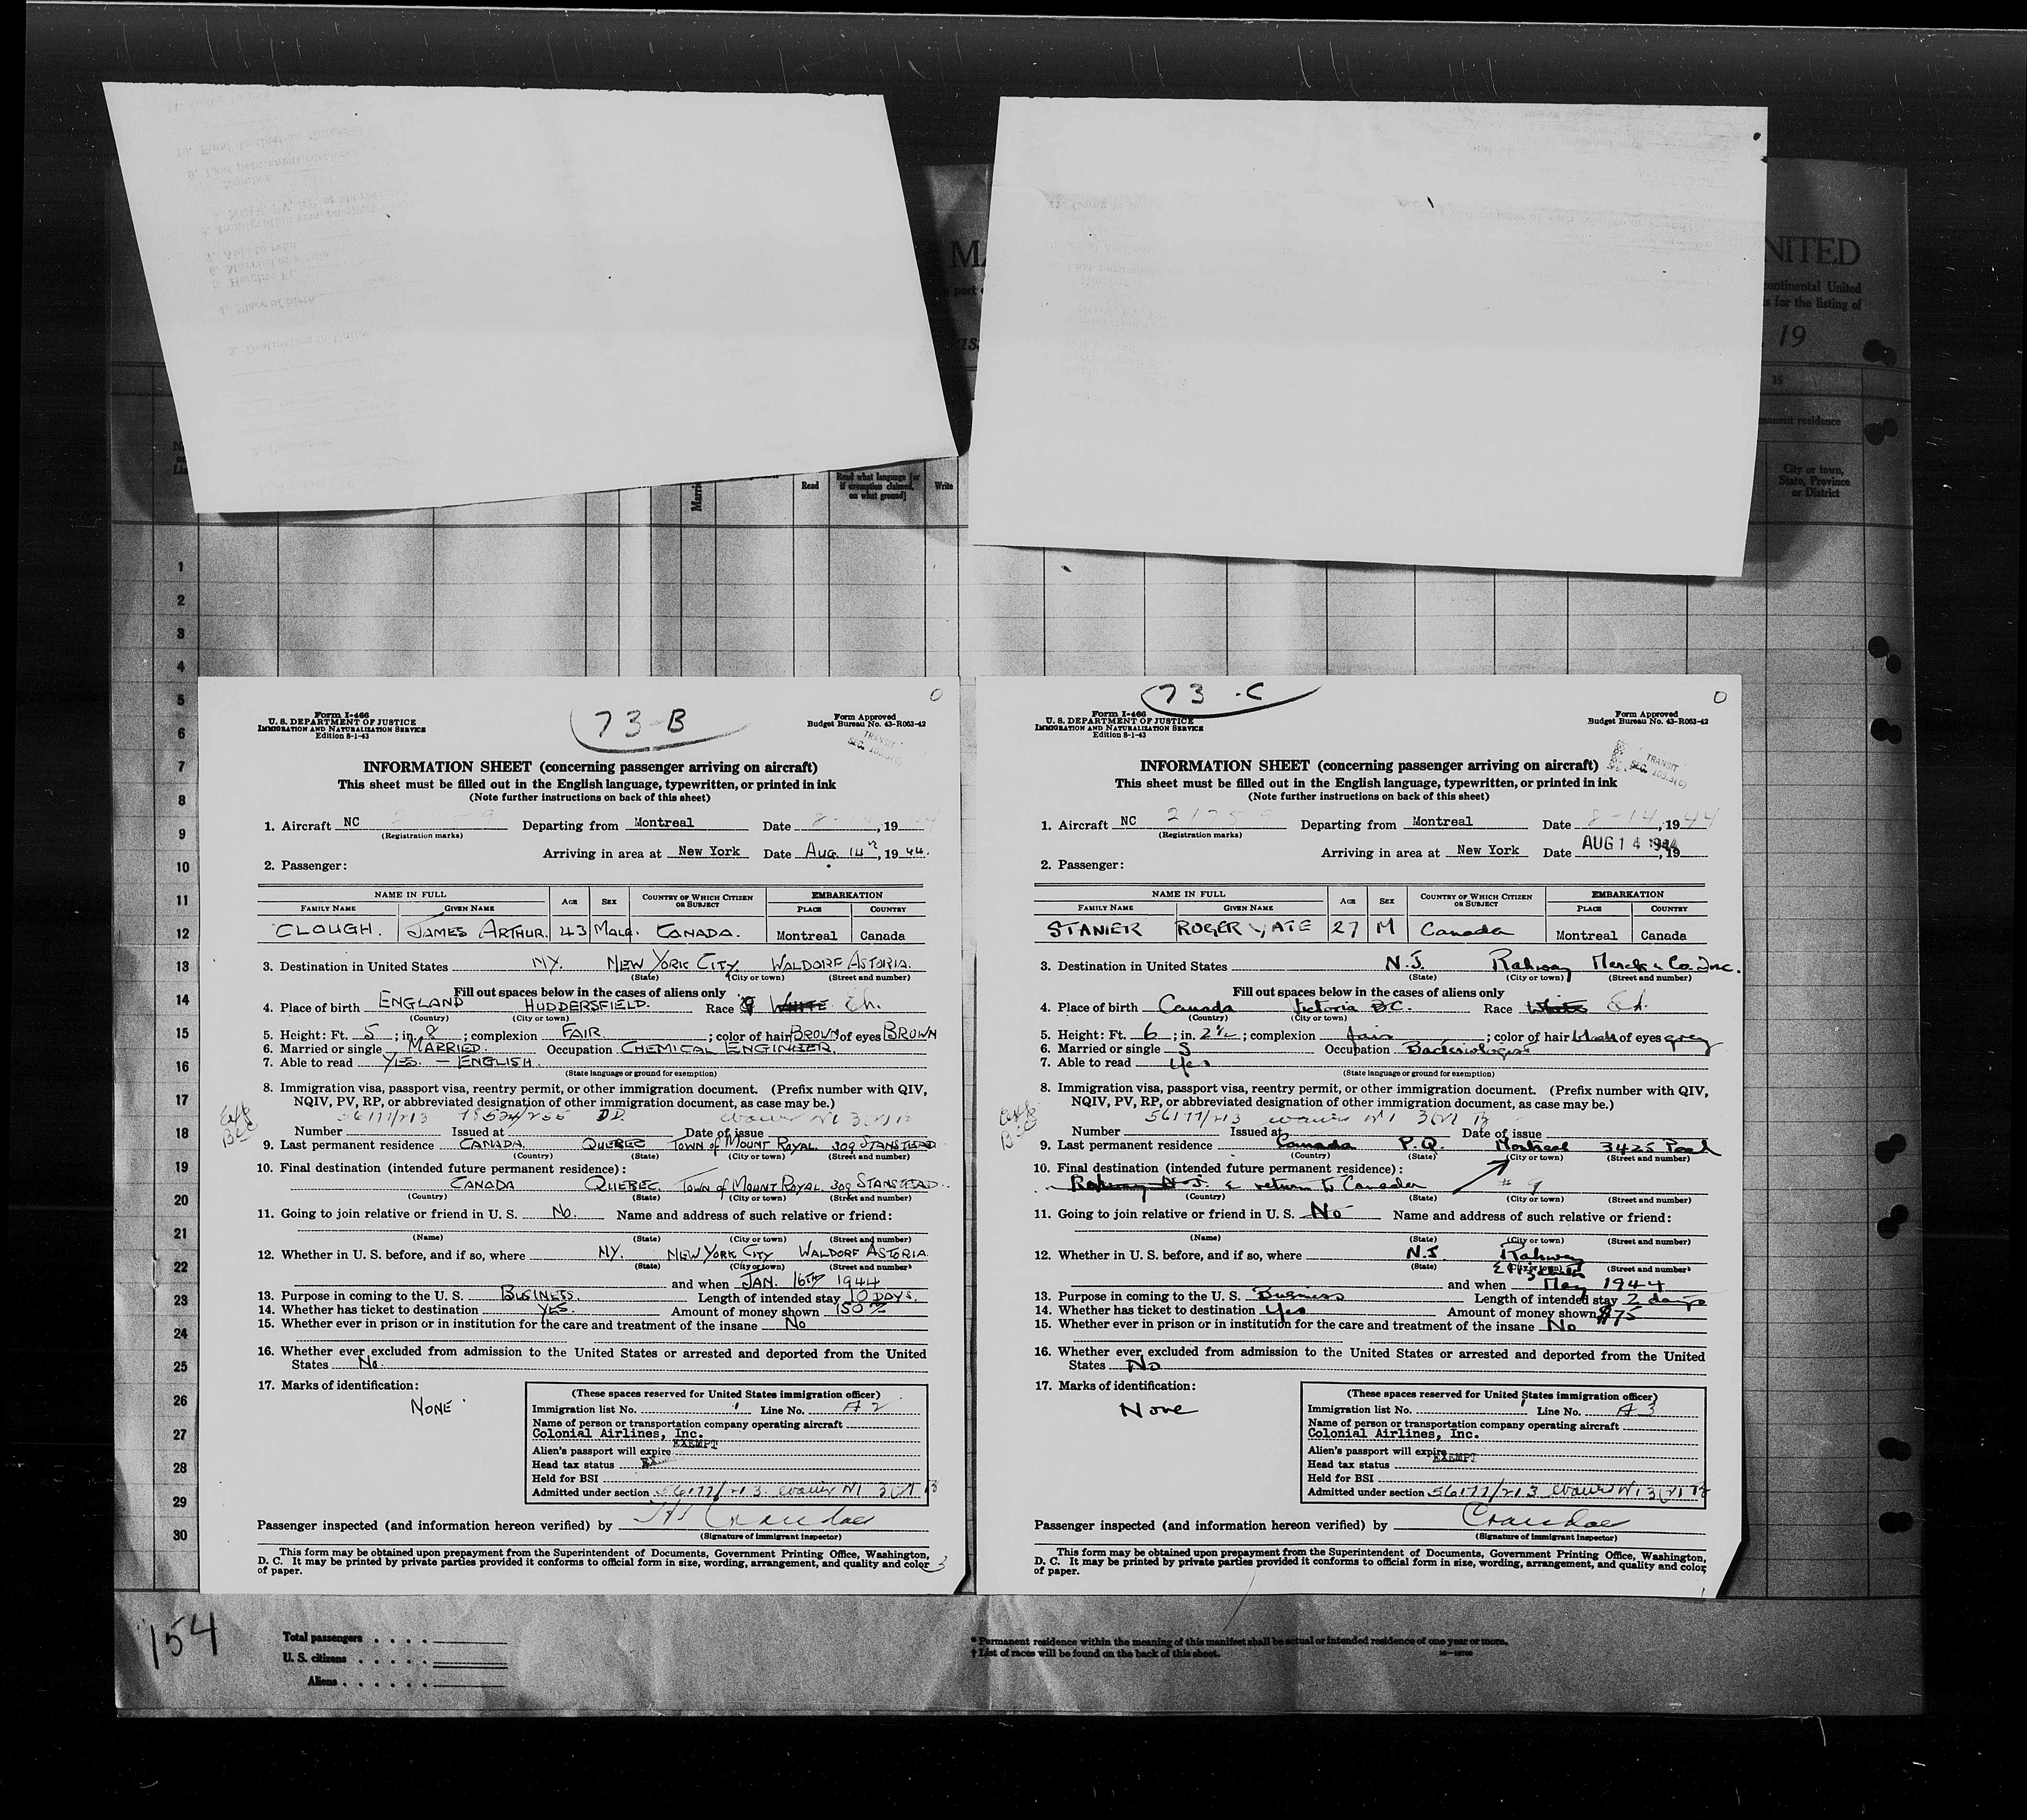 MA
NITED
continental United
s for the listing of
19
15
manent residence
City or town,
State, Province
or District
Read
Read what language [or
if exemption claimed,
on what ground]
Write
1
2
3
4
5
6
7
8
9
10
11
12
13
14
15
16
17
18
19
20
21
22
23
24
25
26
27
28
29
30
73-B
0
Form I-466
U. S. DEPARTMENT OF JUSTICE
IMMIGRATION AND NATURALIZATION SERVICE
Edition 8-1-43
Form Approved
Budget Bureau No. 43-R063-42
TRANSIT
INFORMATION SHEET (concerning passenger arriving on aircraft)
This sheet must be filled out in the English language, typewritten, or printed in ink
(Note further instructions on back of this sheet)
1. Aircraft NC Departing from Montreal Date 8-14, 1944
(Registration marks)
Arriving in area at New York Date Aug. 14th, 1944.
2. Passenger:
NAME IN FULL AGE SEX COUNTRY OF WHICH CITIZEN OR SUBJECT EMBARKATION
FAMILY NAME GIVEN NAME PLACE COUNTRY
CLOUGH. JAMES ARTHUR. 43 Male. CANADA. Montreal Canada
3. Destination in United States NY. NEW YORK CITY WALDORF ASTORIA.
(State) (City or town) (Street and number)
Fill out spaces below in the cases of aliens only
4. Place of birth ENGLAND HUDDERSFIELD. Race WHITE Eh.
(Country) (City or town)
5. Height: Ft. 5; in. 8; complexion FAIR; color of hair BROWN of eyes BROWN
6. Married or single MARRIED. Occupation CHEMICAL ENGINEER.
7. Able to read YES. - ENGLISH.
(State language or ground for exemption)
8. Immigration visa, passport visa, reentry permit, or other immigration document. (Prefix number with QIV,
NQIV, PV, RP, or abbreviated designation of other immigration document, as case may be.)
56177/213 DD
Number Issued at Date of issue
9. Last permanent residence CANADA. QUEBEC TOWN of MOUNT ROYAL 309 STANSTEAD
(Country) (State) (City or town) (Street and number)
10. Final destination (intended future permanent residence):
CANADA QUEBEC TOWN of MOUNT ROYAL 309 STANSTEAD.
(Country) (State) (City or town) (Street and number)
11. Going to join relative or friend in U. S. No. Name and address of such relative or friend:
(Name) (State) (City or town) (Street and number)
12. Whether in U. S. before, and if so, where NY. NEW YORK CITY WALDORF ASTORIA.
(State) (City or town) (Street and number)
and when JAN. 16TH 1944
13. Purpose in coming to the U. S. BUSINESS. Length of intended stay 10 DAYS.
14. Whether has ticket to destination YES. Amount of money shown 150
15. Whether ever in prison or in institution for the care and treatment of the insane No
16. Whether ever excluded from admission to the United States or arrested and deported from the United
States No.
17. Marks of identification:
NONE
(These spaces reserved for United States immigration officer)
Immigration list No. Line No. A 2
Name of person or transportation company operating aircraft
Colonial Airlines, Inc.
Alien's passport will expire EXEMPT
Head tax status
Held for BSI
Admitted under section 56177/213
Passenger inspected (and information hereon verified) by Crandall
(Signature of immigrant inspector)
This form may be obtained upon prepayment from the Superintendent of Documents, Government Printing Office, Washington,
D. C. It may be printed by private parties provided it conforms to official form in size, wording, arrangement, and quality and color
of paper.
3
73-C
0
Form I-466
U. S. DEPARTMENT OF JUSTICE
IMMIGRATION AND NATURALIZATION SERVICE
Edition 8-1-43
Form Approved
Budget Bureau No. 43-R063-42
TRANSIT
INFORMATION SHEET (concerning passenger arriving on aircraft)
This sheet must be filled out in the English language, typewritten, or printed in ink
(Note further instructions on back of this sheet)
1. Aircraft NC 21759 Departing from Montreal Date 8-14, 1944
(Registration marks)
Arriving in area at New York Date AUG 14 1944, 19
2. Passenger:
NAME IN FULL AGE SEX COUNTRY OF WHICH CITIZEN OR SUBJECT EMBARKATION
FAMILY NAME GIVEN NAME PLACE COUNTRY
STANIER ROGER YATE 27 M Canada Montreal Canada
3. Destination in United States N.J. Rahway Merck & Co. Inc.
(State) (City or town) (Street and number)
Fill out spaces below in the cases of aliens only
4. Place of birth Canada Victoria B.C. Race White Eh.
(Country) (City or town)
5. Height: Ft. 6; in. 2½; complexion fair; color of hair black of eyes grey
6. Married or single S Occupation Bacteriologist
7. Able to read Yes
(State language or ground for exemption)
8. Immigration visa, passport visa, reentry permit, or other immigration document. (Prefix number with QIV,
NQIV, PV, RP, or abbreviated designation of other immigration document, as case may be.)
56177/213
Number Issued at Date of issue
9. Last permanent residence Canada P.Q. Montreal 3425 Peel
(Country) (State) (City or town) (Street and number)
10. Final destination (intended future permanent residence):
Rahway N.J. & return to Canada # 9
(Country) (State) (City or town) (Street and number)
11. Going to join relative or friend in U. S. No Name and address of such relative or friend:
(Name) (State) (City or town) (Street and number)
12. Whether in U. S. before, and if so, where N.J. Rahway
(State) (City or town) (Street and number)
and when May 1944
13. Purpose in coming to the U. S. Business Length of intended stay 2 days
14. Whether has ticket to destination Yes Amount of money shown $75
15. Whether ever in prison or in institution for the care and treatment of the insane No
16. Whether ever excluded from admission to the United States or arrested and deported from the United
States No
17. Marks of identification:
None
(These spaces reserved for United States immigration officer)
Immigration list No. Line No. A 3
Name of person or transportation company operating aircraft
Colonial Airlines, Inc.
Alien's passport will expire
Head tax status EXEMPT
Held for BSI
Admitted under section 56177/213
Passenger inspected (and information hereon verified) by Crandall
(Signature of immigrant inspector)
This form may be obtained upon prepayment from the Superintendent of Documents, Government Printing Office, Washington,
D. C. It may be printed by private parties provided it conforms to official form in size, wording, arrangement, and quality and color
of paper.
154
Total passengers
U. S. citizens
Aliens
* Permanent residence within the meaning of this manifest shall be actual or intended residence of one year or more.
† List of races will be found on the back of this sheet.